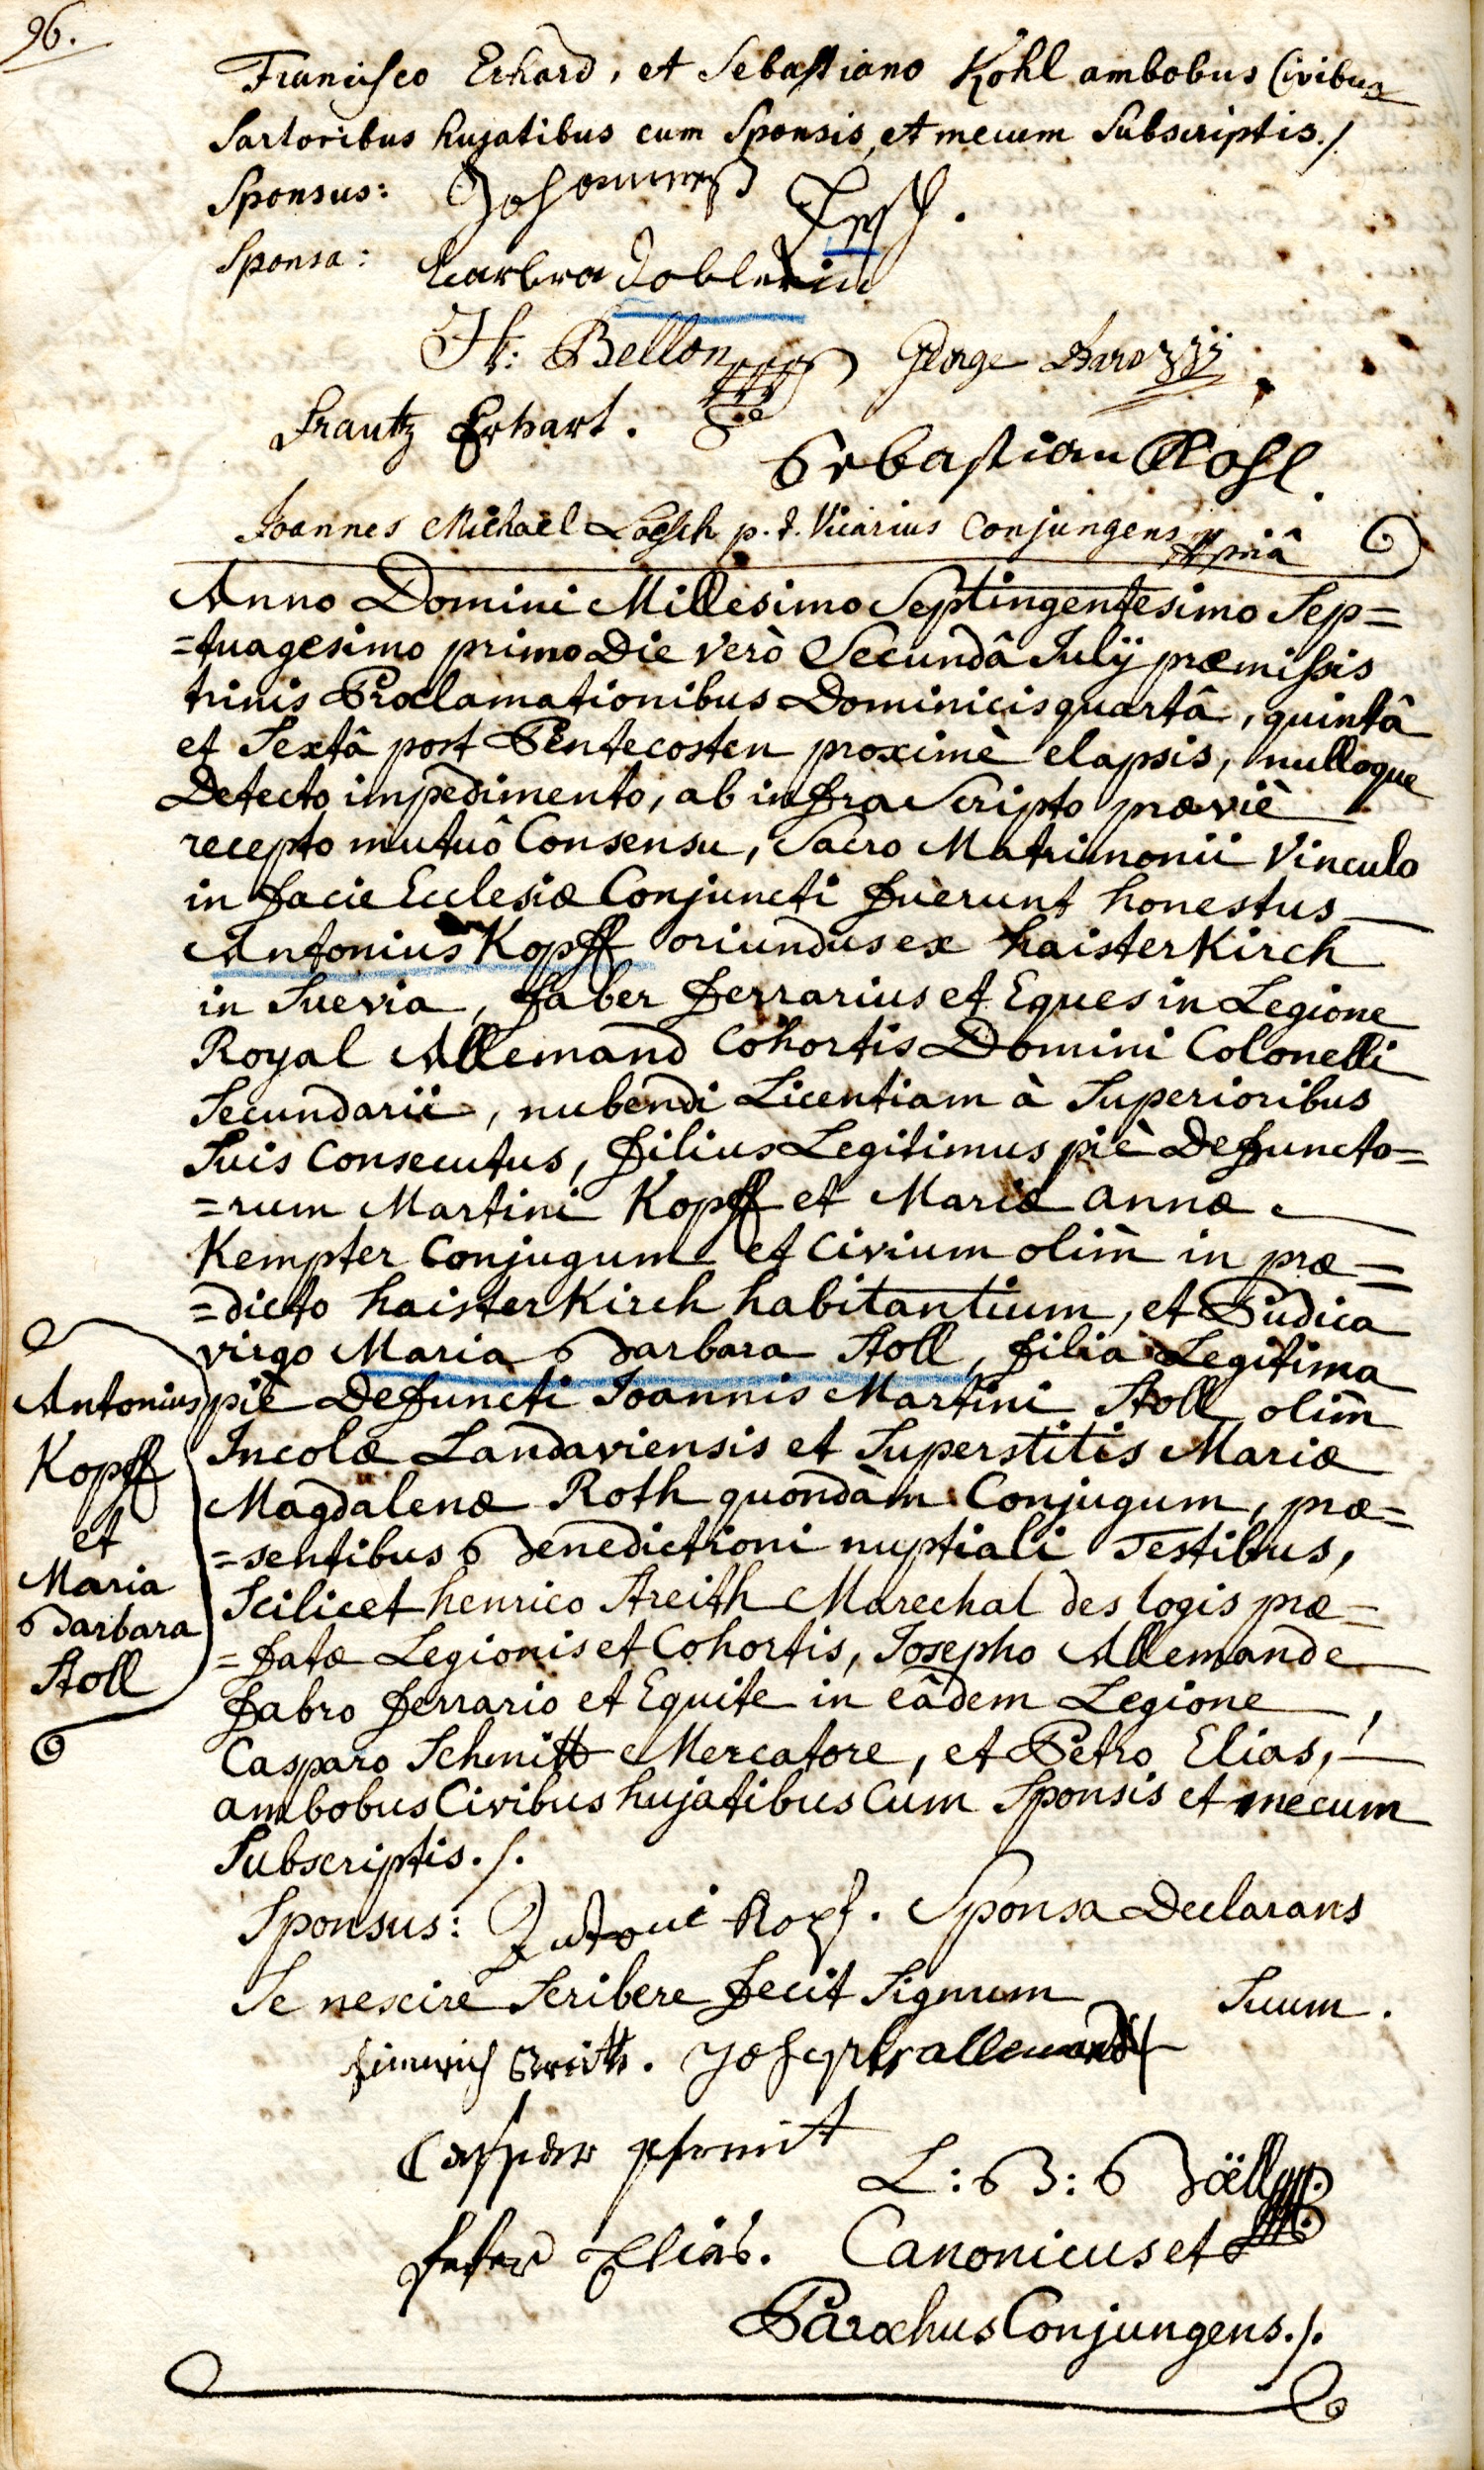 96.
Francisco Erhard, et Sebastiano Kohl ambobus Civibus
Sartoribus hujatibus cum Sponsis, et mecum Subscriptis./.
Sponsus: Johanneß
Sponsa: barbra doblerin
Bellon George Barozzÿ
Frantz Erhart.
Sebastian Kohl.
Joannes Michaël Loesch p. t. Vicarius Conjungens
Anno Domini Millesimo Septingentesimo Sep=
=tuagesimo primo Die verò Secundâ Julÿ præmissis
trinis Proclamationibus Dominicis quartâ, quintâ
et Sextâ post Pentecosten proximè elapsis, nulloque
Detecto impedimento, ab infra Scripto præviè
recepto mutuô Consensu, Sacro Matrimonii Vinculo
in facie Ecclesiæ Conjuncti fuerunt honestus
Antonius Kopff oriundus ex haisterKirch
in Suevia, faber ferrarius et Eques in Legione
Royal Allemand Cohortis Domini Colonelli
Secundarii, nubendi Licentiam à Superioribus
Suis Consecutus, filius Legitimus piè Defuncto=
=rum Martini Kopff et Mariæ annæ
Kempter Conjugum et Civium olim̀ in præ=
=dicto haisterKirch habitantium, et Pudica
virgo Maria Barbara Stoll, filia Legitima
piè Defuncti Joannis Martini Stoll olim̀
Incolæ Landaviensis et Superstitis Mariæ
Magdalenæ Roth quondàm Conjugum, præ=
=sentibus Benedictioni nuptiali Testibus,
Scilicet henrico Streith Marechal des logis præ=
=fatæ Legionis et Cohortis, Josepho Allemande
fabro ferrario et Equite in eâdem Legione,
Casparo Schmitt Mercatore, et Petro Elias,
ambobus Civibus hujatibus Cum Sponsis et mecum
Subscriptis./.
Antonius
Kopff
et
Maria
Barbara
Stoll
Sponsus: Antoni Kopf. Sponsa Declarans
Se nescire Scribere fecit Signum Suum.
Joseph allemand
Casspar schmit
L: B: Böell
Peter Elias. Canonicus et
Parochus Conjungens./.